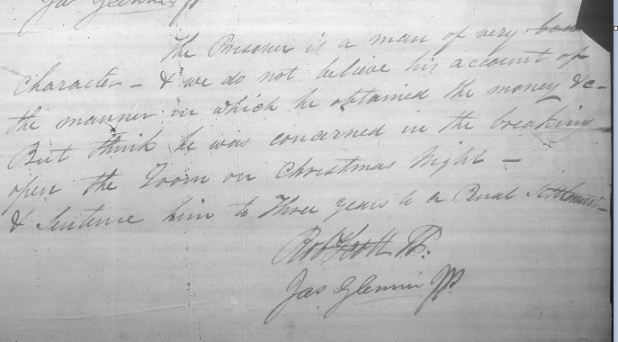 Jas Glennie JP
The Prisoner is a man of very bad
character - & we do not believe his account of
the manner in which he obtained the money &c -
But think he was concerned in the breaking
open the Room on Christmas Night -
& Sentence him to Three years to a Penal Settlement -
Robt Scott JP.
Jas Glennie JP.